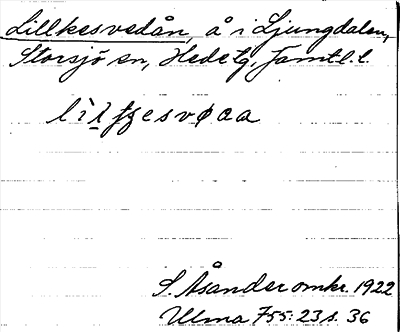 Lillkesvedån, å i Ljungdalen,
Storsjö sn, Hede tg, Jämtl. l.
S. Åsander omkr. 1922
Ulma 755:23 s. 36